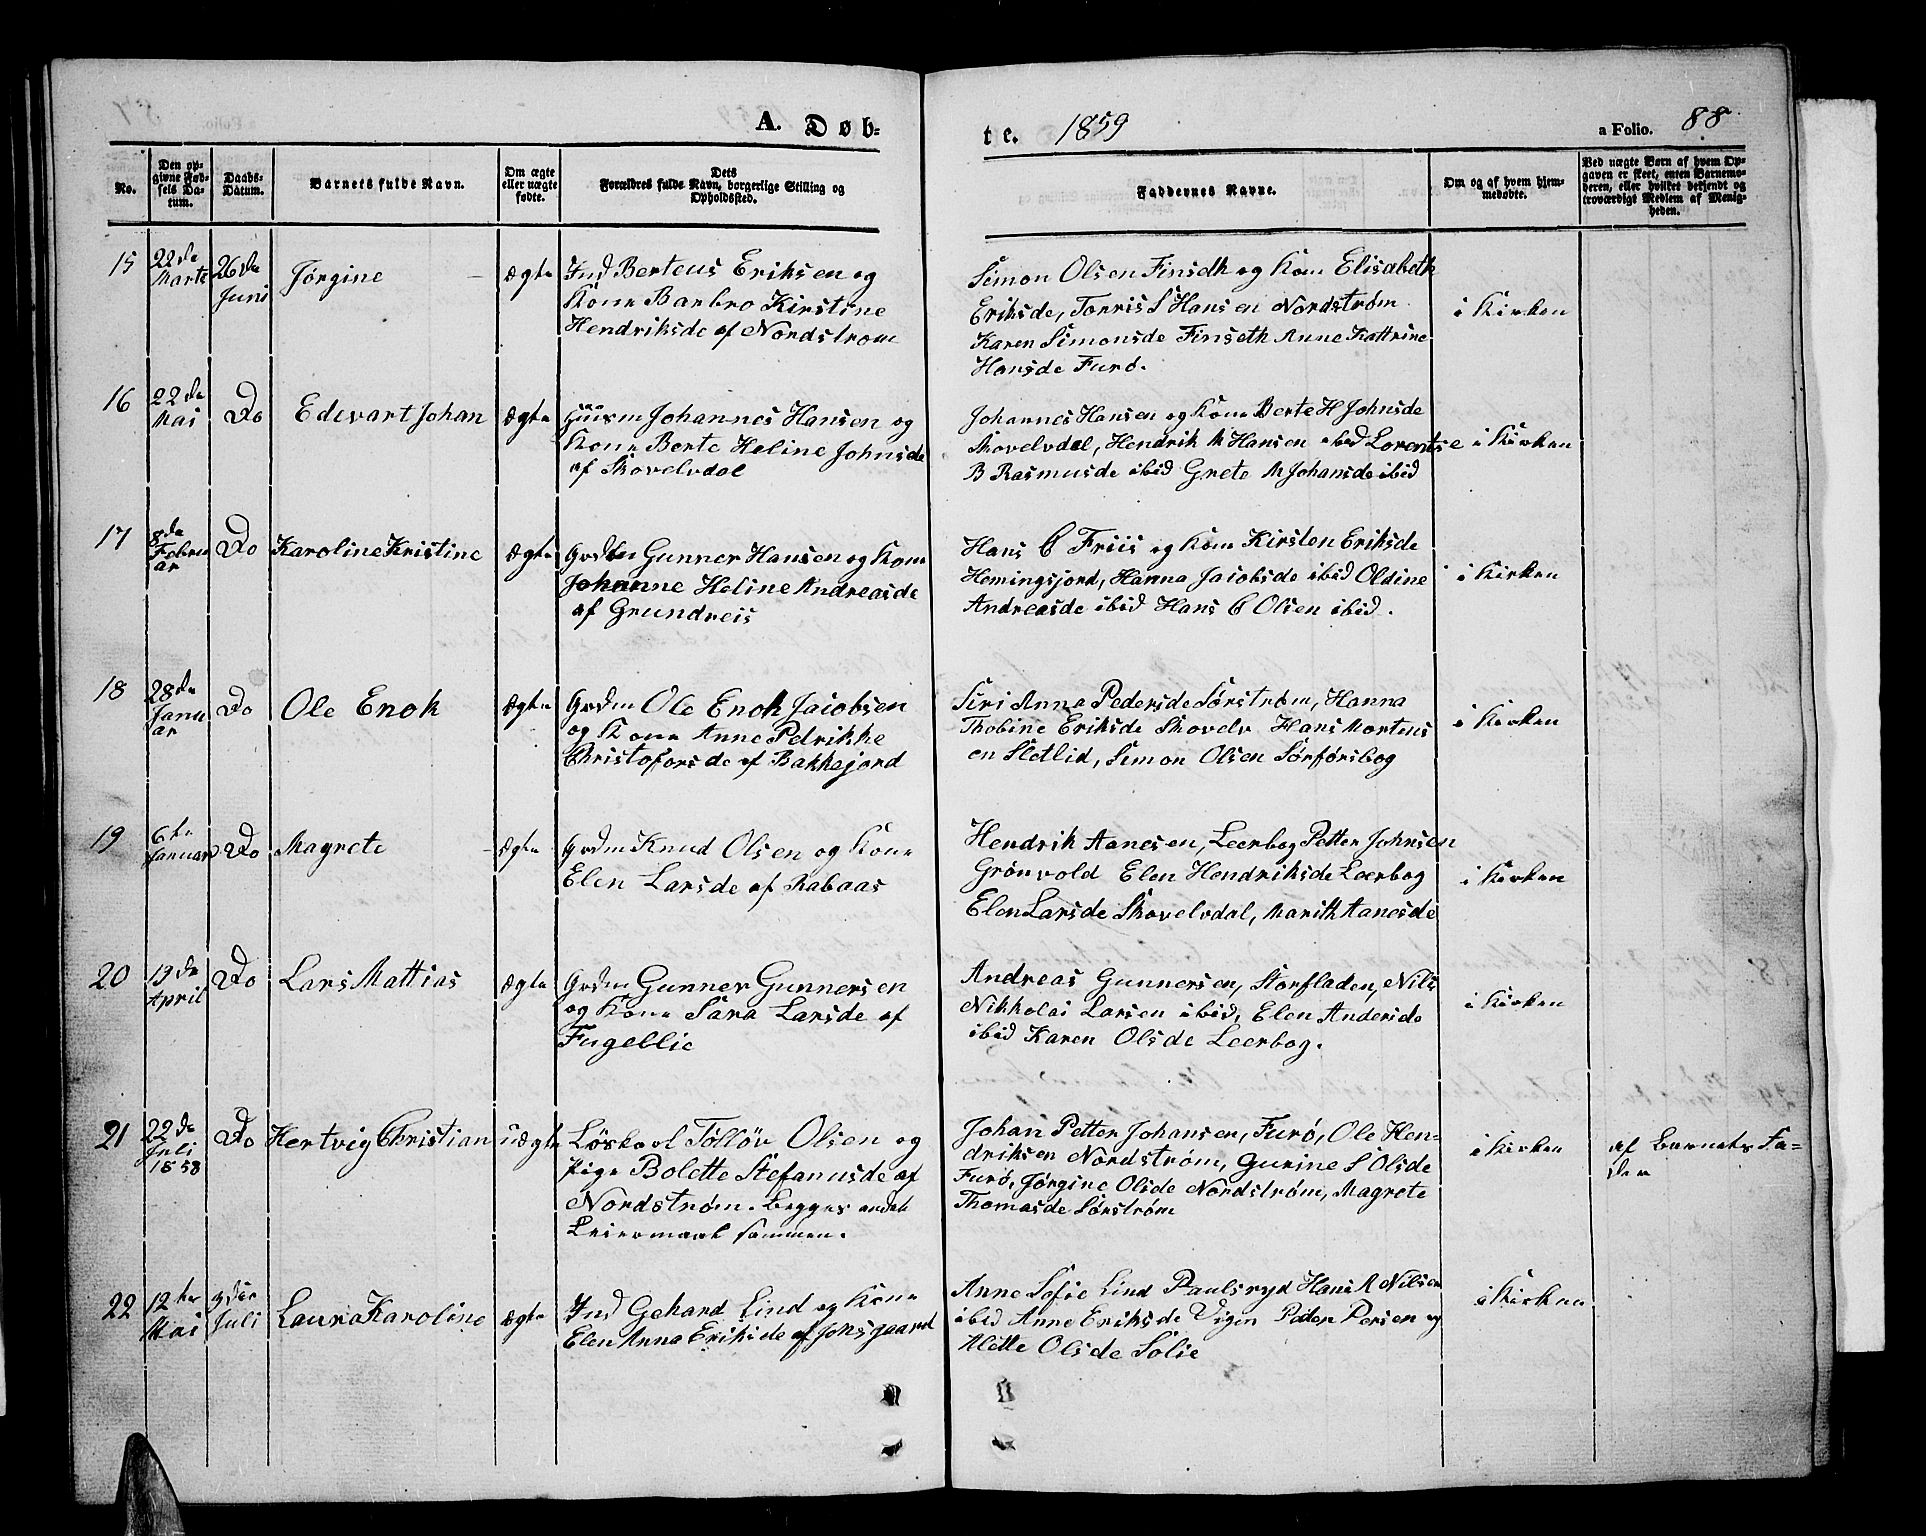 A. Døb-
te. 1859
a Folio. 88.
No.
Den op-
givne Fød-
sels Da-
tum.
Daabs-
Datum.
Barnets fulde Navn.
Om ægte
eller uægte
fødte.
Dets
Forældres fulde Navn, borgerlige Stilling og
Opholdssted.
Faddernes Navne.
Om og af hvem hjem-
medøbte.
Ved uægte Børn af hvem Op-
gaven er skeet, enten Barnemo-
deren, eller hvilket bekjendt og
troværdigt Medlem af Menig-
heden.
15
22de
Marts
26de
Juni
Jørgine
Ægte
Ind Berteus Eriksen og
Kone Barbro Kirstine
Hendriksde af Nordstrom
Simon Olsen Finsdh og Kone Elisabeth
Eriksde, Tonris S Hansen Nordstrøm
Karen Simonsde Finseth Anne Kattrine
Hansde Furø.
i Kirken
16
22de
Mai
Do
Edevart Johan
Ægte
Huusm Johannes Hansen og
Kone Berte Heline Johnsde
af Skovelvdal
Johannes Hansen og Kone Berte H Johnsde
Skovelvdal, Hendrik M Hansen ibid Lorentse
B Rasmusde ibid Grete M Johansde ibid
i Kirken
17
8de
Febru
ar
Do
Karoline Kristine
Ægte
Grdm Gunner Hansen og Kone
Johanne Heline Andreasde
af Grundreis
Hans C Friis og Kone Kirsten Eriksde
Hemingsjord, Hanna Jaiobsde ibid Oldine
Andreasde ibid Hans C Olsen ibid.
i Kirken
18
28de
Janu
ar
Do
Ole Enok
Ægte
Grdm Ole Enok Jaiobsen
og Kone Anne Pedrikke
Christoforsde af Bakkejord
Siri Anna Pedersde Sørstrøm, Hanna
Thobine Eriksde Skovelv Hans Mortens
en Sletlid, Simon Olsen Sørførsbog
i Kirken
19
6te
Januar
Do
Magrete
Ægte
Grdm Knud Olsen og Kone
Elen Larsde af Rabaas
Hendrik Aanesen, Leerbog Petter Johnsen
Grönvold Elen Hendriksde Leerbog
Elen Larsde Skovelvdal, Marith Aanesde
i Kirken
20
19de
April
Do
Lars Mattias
Ægte
Grdm Gunner Gunnersen
og Kone Sara Larsde af
Fugellie
Andreas Gunnersen, Storfladen, Nils
Nikkolai Larsen ibid, Elen Andersde
ibid Karen Olsde Leerbog.
i Kirken
21
22de
Juli
1858
Do
Hertvig Christian
Uægte
Løskarl Tölløv Olsen og
Pige Bolette Stefanusde af
Nordstrøm. Begges andet
Leiermaal sammen.
Johan Petter Johansen, Furö, Ole Hen-
driksen Nordstrøm, Gurine S Olsde
Furö, Jørgine Olsde Nordstrøm, Magrete
Thomasde Sørstrøm
i Kirken
af Barnets Fa-
der
22
12te
Mai
3die
Juli
Laura Karoline
Ægte
Ind Gehard Lind og Kone
Elen Anna Eriksde af Jonsgaard
Anne Sofie Lind Paulsryd Hans A Nilsen
ibid Anne Eriksde Vigen Peder Persen og
Alette Olsde Solie
i Kirken